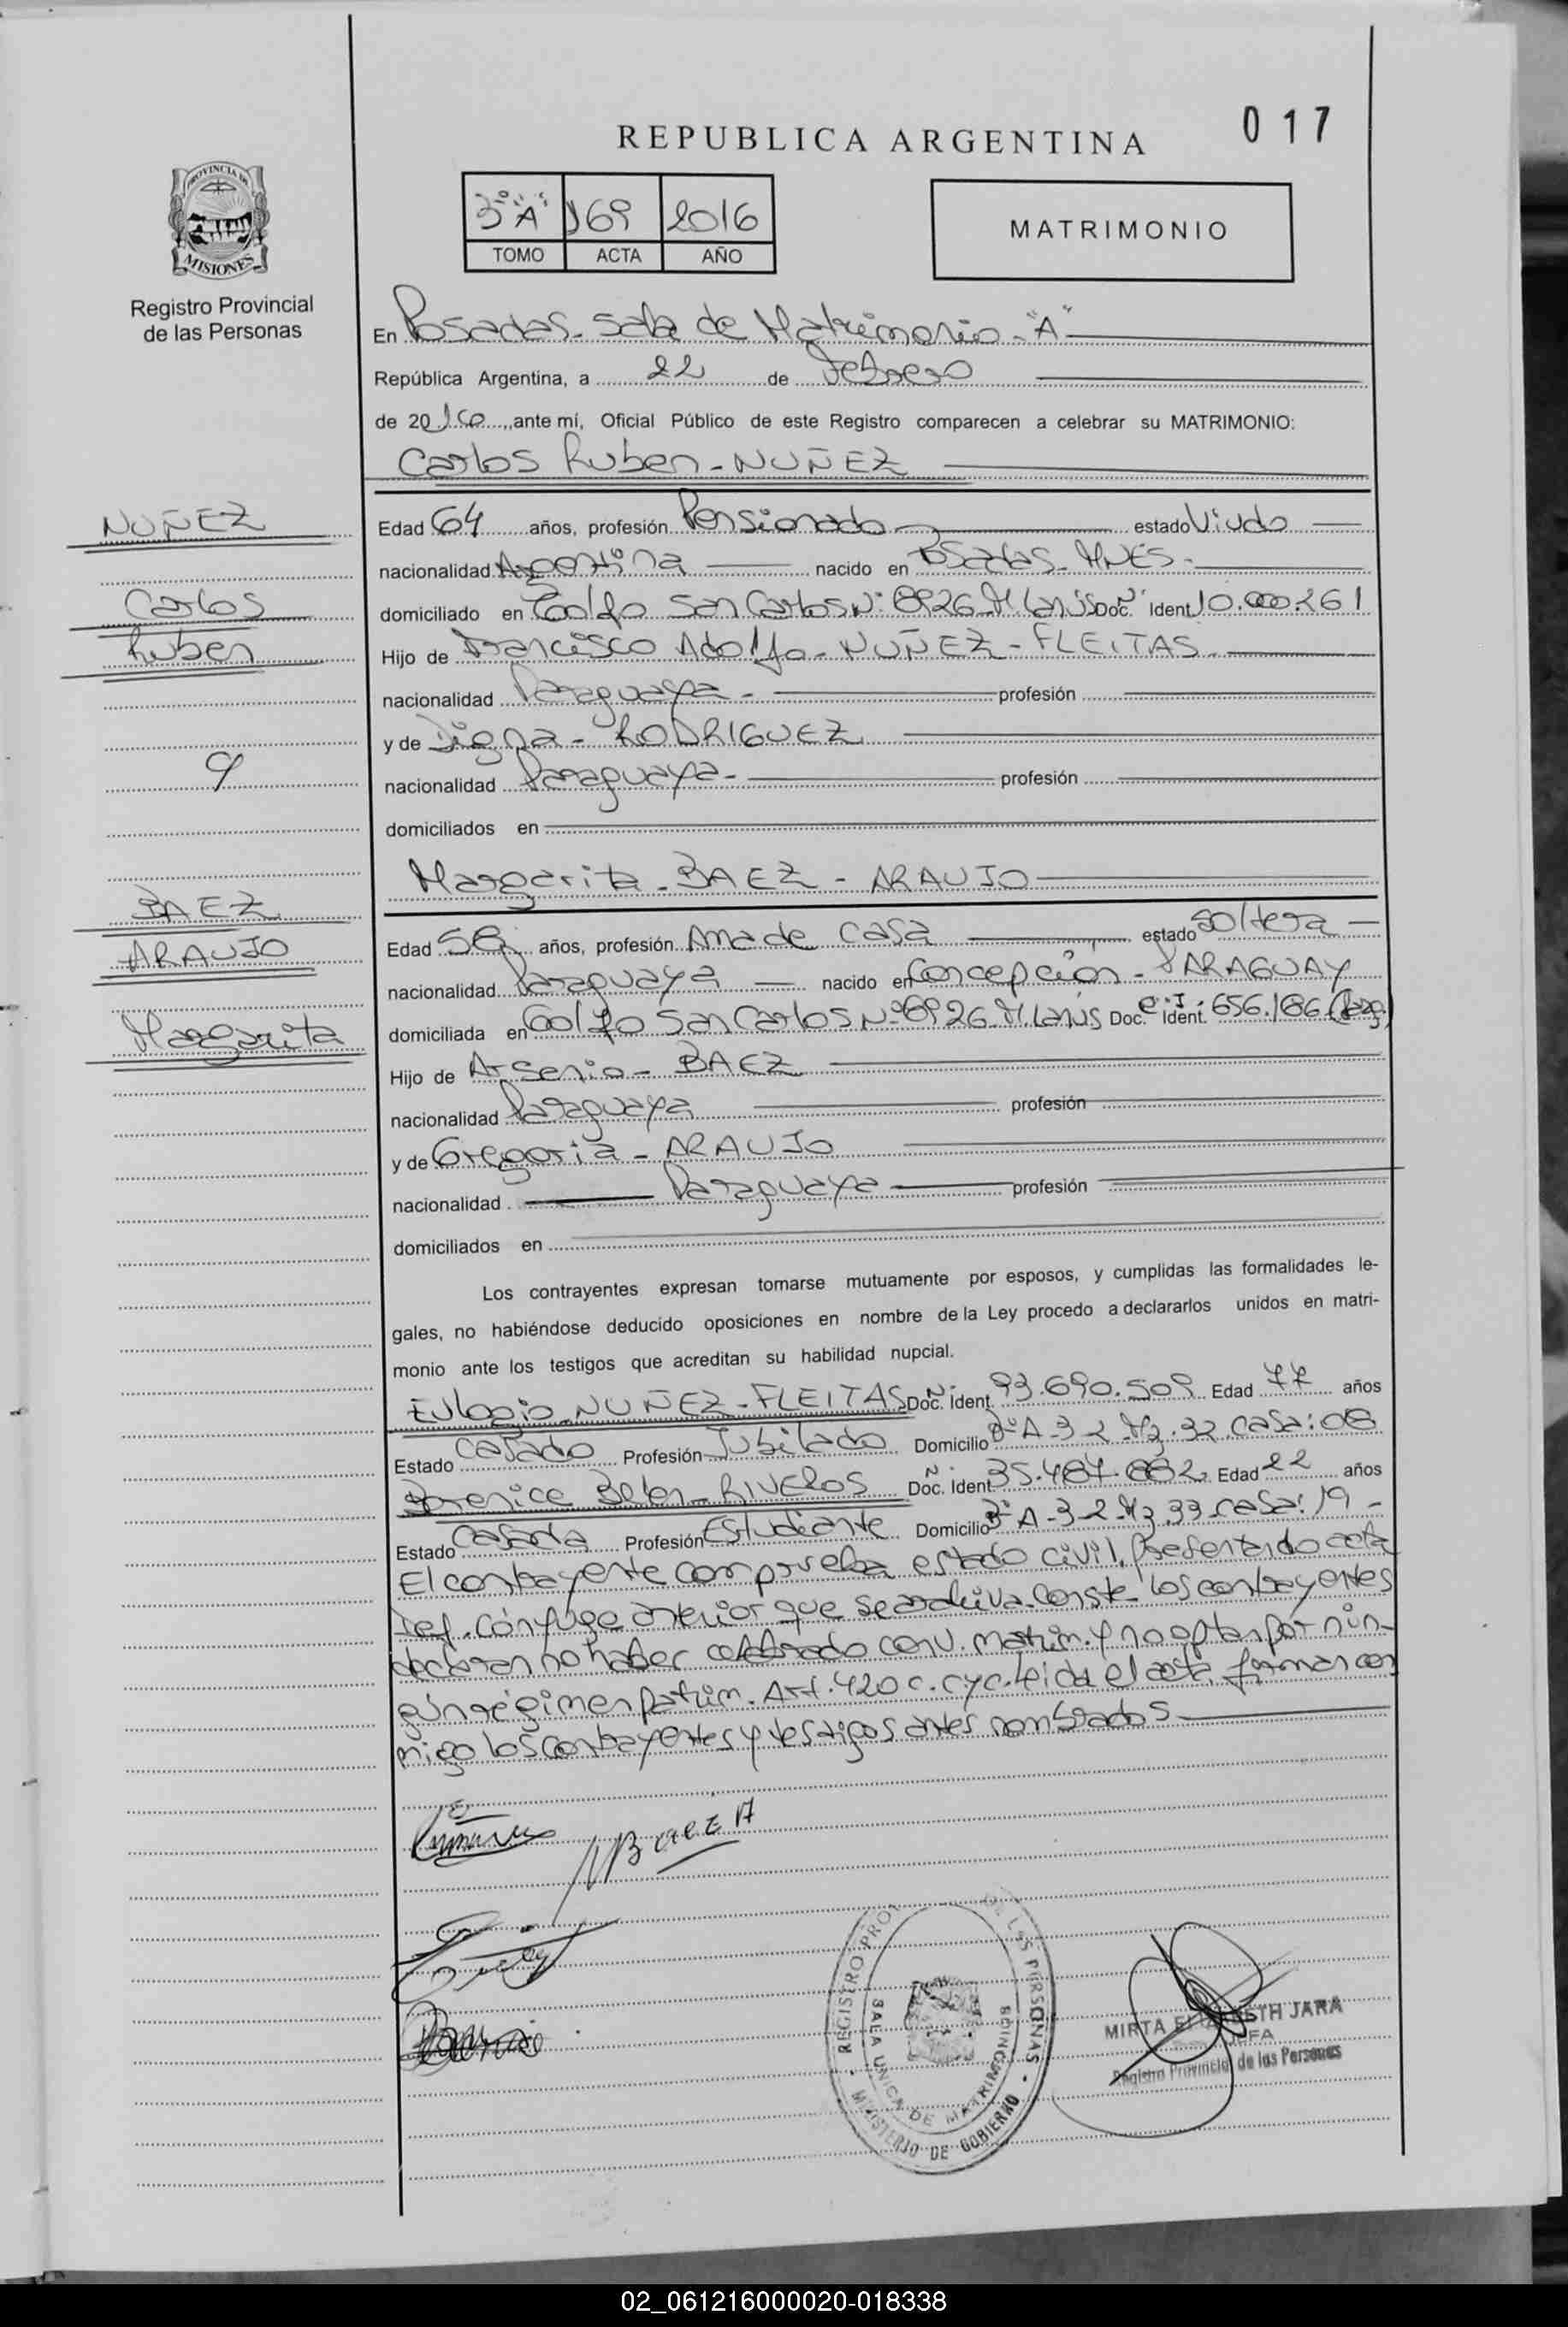 017
REPUBLICA ARGENTINA
3º "A" 169 2016
TOMO ACTA AÑO
MATRIMONIO
PROVINCIA DE MISIONES
Registro Provincial
de las Personas
En Posadas - Sala de Matrimonio - "A"
República Argentina, a 22 de Febrero
de 2016, ante mí, Oficial Público de este Registro comparecen a celebrar su MATRIMONIO:
Carlos Ruben - NUÑEZ
NUÑEZ
Carlos
Ruben
Edad 64 años, profesión Pensionado estado Viudo
nacionalidad Argentina nacido en Posadas - MNES -
domiciliado en Golfo San Carlos Nº 8926 - M. Lanús Doc. Ident. 10.000.261
Hijo de Francisco Adolfo - NUÑEZ - FLEITAS
nacionalidad Paraguaya - profesión
y de Digna - RODRIGUEZ
nacionalidad Paraguaya - profesión
domiciliados en
Margarita - BAEZ - ARAUJO
y
BAEZ
ARAUJO
Margarita
Edad años, profesión Ama de casa estado Soltera
nacionalidad Paraguaya nacido en Concepción - PARAGUAY
domiciliada en Golfo San Carlos Nº 8926 - M. Lanús Doc. C.I. Ident. 656.186 (Parag)
Hijo de Arsenio - BAEZ
nacionalidad Paraguaya profesión
y de Gregoria - ARAUJO
nacionalidad Paraguaya profesión
domiciliados en
Los contrayentes expresan tomarse mutuamente por esposos, y cumplidas las formalidades le-
gales, no habiéndose deducido oposiciones en nombre de la Ley procedo a declararlos unidos en matri-
monio ante los testigos que acreditan su habilidad nupcial.
Eulogio - NUÑEZ - FLEITAS Doc. Nº Ident. 93.690.509 Edad 77 años
Estado Casado Profesión Jubilado Domicilio Bº A-3-2 Mz. 32 Casa: 08
Berenice Belen - RIVEROS Doc. Nº Ident. 35.487.882 Edad 22 años
Estado Casada Profesión Estudiante Domicilio Bº A-3-2 Mz 33 Casa: 19 -
El contrayente comprueba estado civil, presentando acta
def. cónyuge anterior que se archiva. Conste - los contrayentes
declaran no haber celebrado conv. matrim. y no optan por nin-
gún régimen patrim. Art. 420 C. C y C. Leida el acta, firman con
migo los contrayentes y testigos antes nombrados
MBaez A
REGISTRO PROVINCIAL DE LAS PERSONAS
SALA UNICA DE MATRIMONIOS
MINISTERIO DE GOBIERNO
MIRTA ELIZABETH JARA
JEFA
Registro Provincial de las Personas
02_061216000020-018338